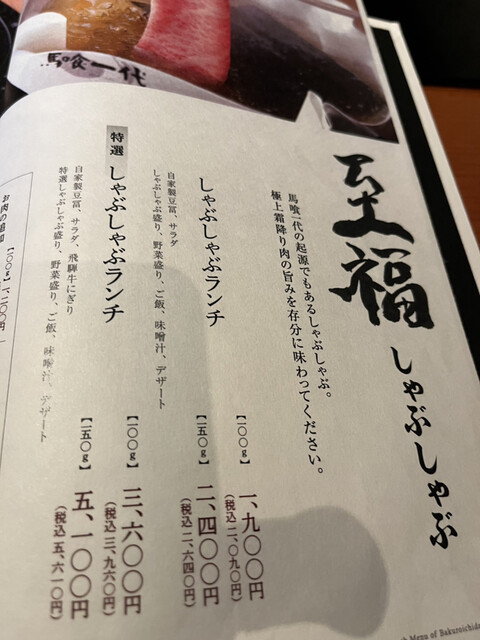 馬喰一代
至福
しゃぶしゃぶ
馬喰一代の起源でもあるしゃぶしゃぶ。
極上霜降り肉の旨みを存分に味わってください。
しゃぶしゃぶランチ
自家製豆冨、サラダ
しゃぶしゃぶ盛り、野菜盛り、ご飯、味噌汁、デザート
【一〇〇g】一、九〇〇円
(税込 二、〇九〇円)
【一五〇g】二、四〇〇円
(税込 二、六四〇円)
特選 しゃぶしゃぶランチ
自家製豆冨、サラダ、飛騨牛にぎり
特選しゃぶしゃぶ盛り、野菜盛り、ご飯、味噌汁、デザート
【一〇〇g】三、六〇〇円
(税込 三、九六〇円)
【一五〇g】五、一〇〇円
(税込 五、六一〇円)
お肉の追加
【一〇〇g】一、二〇〇円
Menu of Bakuroichidai